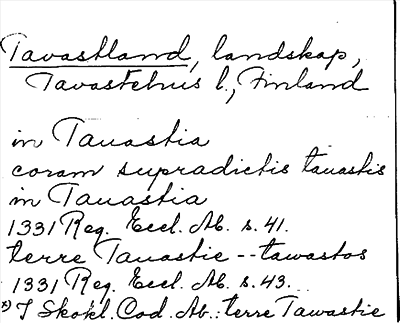 Tavastland, landskap,
Tavastehus l., Finland
in Tauastia
coram supradictis tauastis
in Tauastia
1331 Reg. Eccl. Ab. s. 41.
terre Tauastie -- tawastos
1331 Reg. Eccl. Ab. s. 43.
x) I Skokl. Cod. Ab.: terre Tawastie